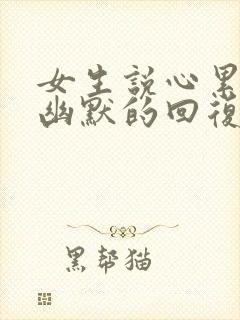 女生说心累
幽默的回復
黑帮猫